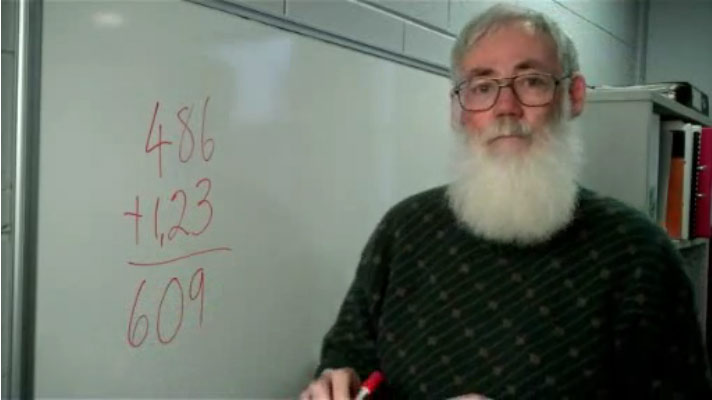 486
+1,23
609